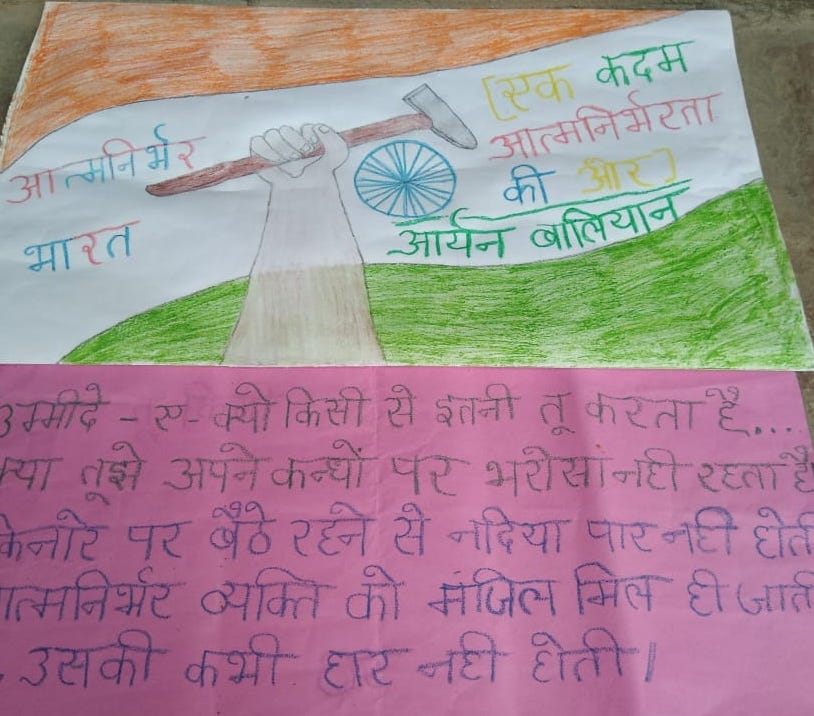 आत्मनिर्भर
भारत
[एक कदम
आत्मनिर्भरता
की ओर]
आर्यन बालियान
उम्मीदे - ए - क्यो किसी से इतनी तू करता है...
क्या तूझे अपने कन्धों पर भरोसा नही रहता है
केनारे पर बैठे रहने से नदिया पार नही होती
आत्मनिर्भर व्यक्ति को मंजिल मिल ही जाती
उसकी कभी हार नही होती।